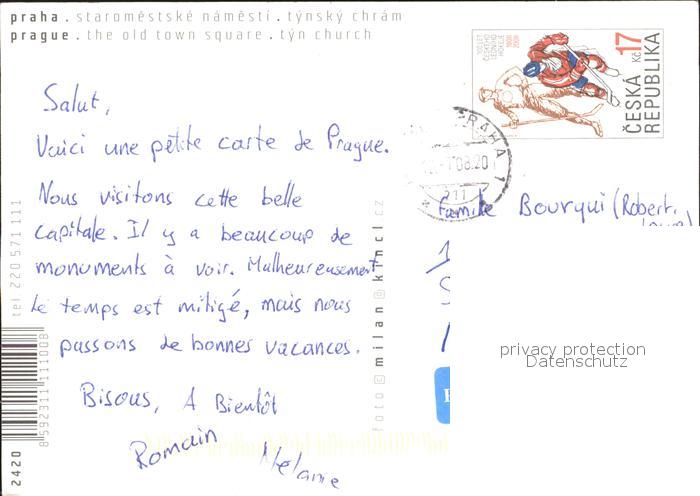 praha . staroměstské náměstí . týnský chrám
prague . the old town square . týn church
Salut,
Voici une petite carte de Prague.
Nous visitons cette belle
capitale. Il y a beaucoup de
monuments à voir. Malheureusement
le temps est mitigé, mais nous
passons de bonnes vacances.
Bisous, A Bientôt
Romain
Melanie
100 LET
ČESKÉHO
LEDNÍHO
HOKEJE
1908
2008
17 Kč
ČESKÁ
REPUBLIKA
PRAHA 1
08.20
Famille Bourqui (Robert,
privacy protection
Datenschutz
foto © milan @ kincl . cz
tel 220571111
8592311111008
2420